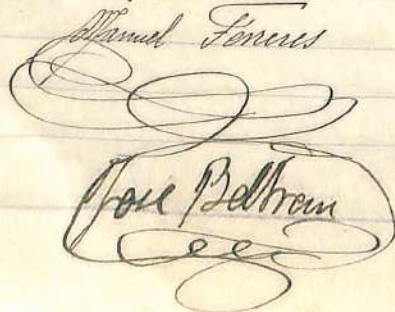 Manuel Ferreres
Jose Beltran